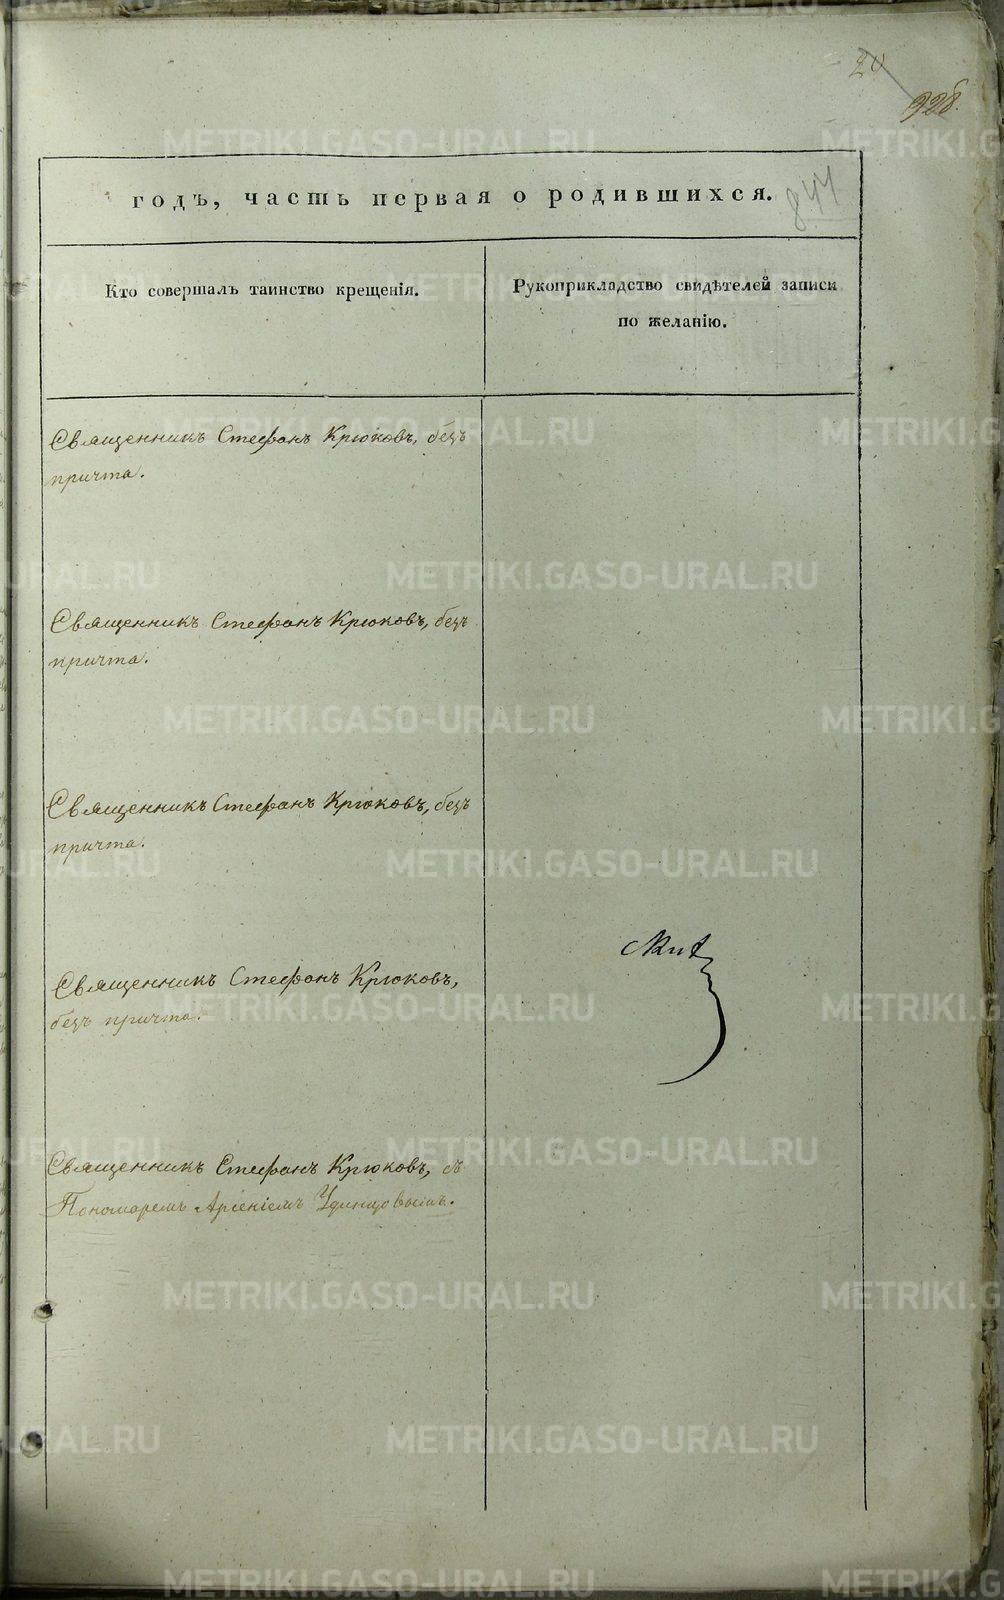 20
328.
844
годъ, часть первая о родившихся.
Кто совершалъ таинство крещенія.
Рукоприкладство свидѣтелей записи
по желанію.
Священникъ Стефанъ Крюковъ, безъ
причта.
Священникъ Стефанъ Крюковъ, безъ
причта.
Священникъ Стефанъ Крюковъ, безъ
причта.
Священникъ Стефанъ Крюковъ,
безъ причта.
Священникъ Стефанъ Крюковъ, съ
Пономаремъ Арсеніемъ Удинцовымъ.
METRIKI.GASO-URAL.RU